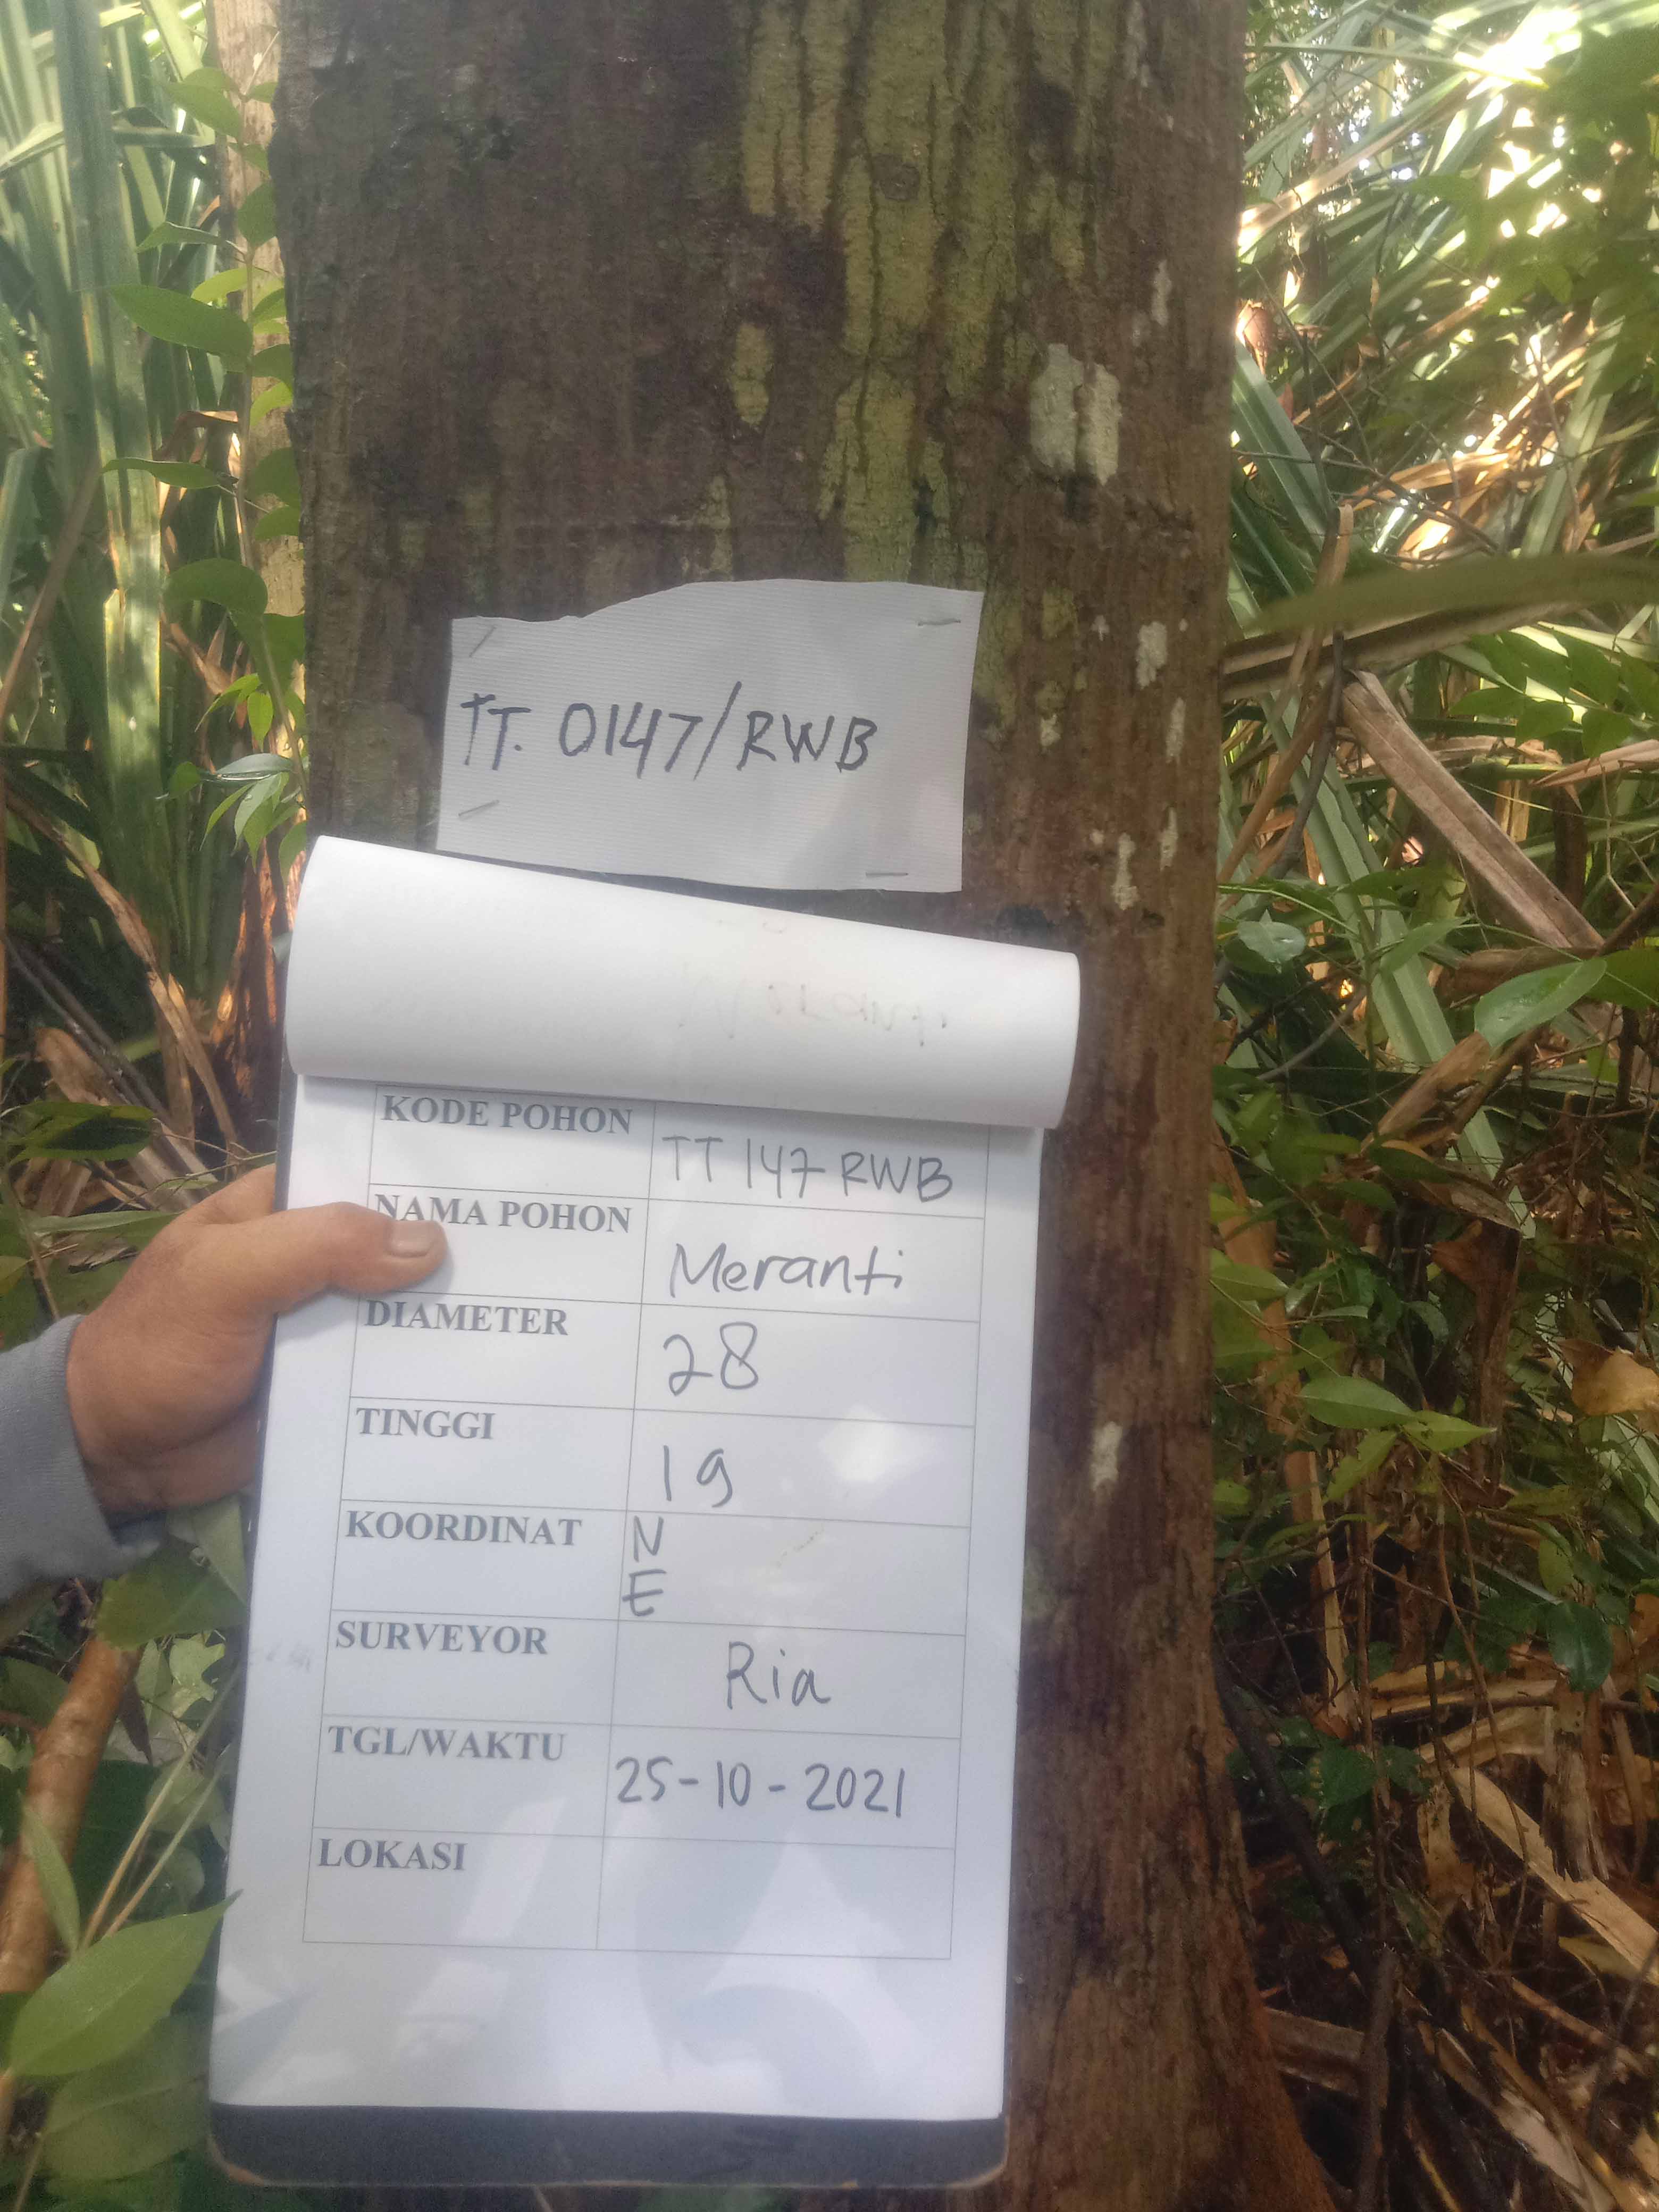 TT. 0147/RWB
KODE POHON TT 147 RWB
NAMA POHON Meranti
DIAMETER 28
TINGGI 19
KOORDINAT N
E
SURVEYOR Ria
TGL/WAKTU 25-10-2021
LOKASI